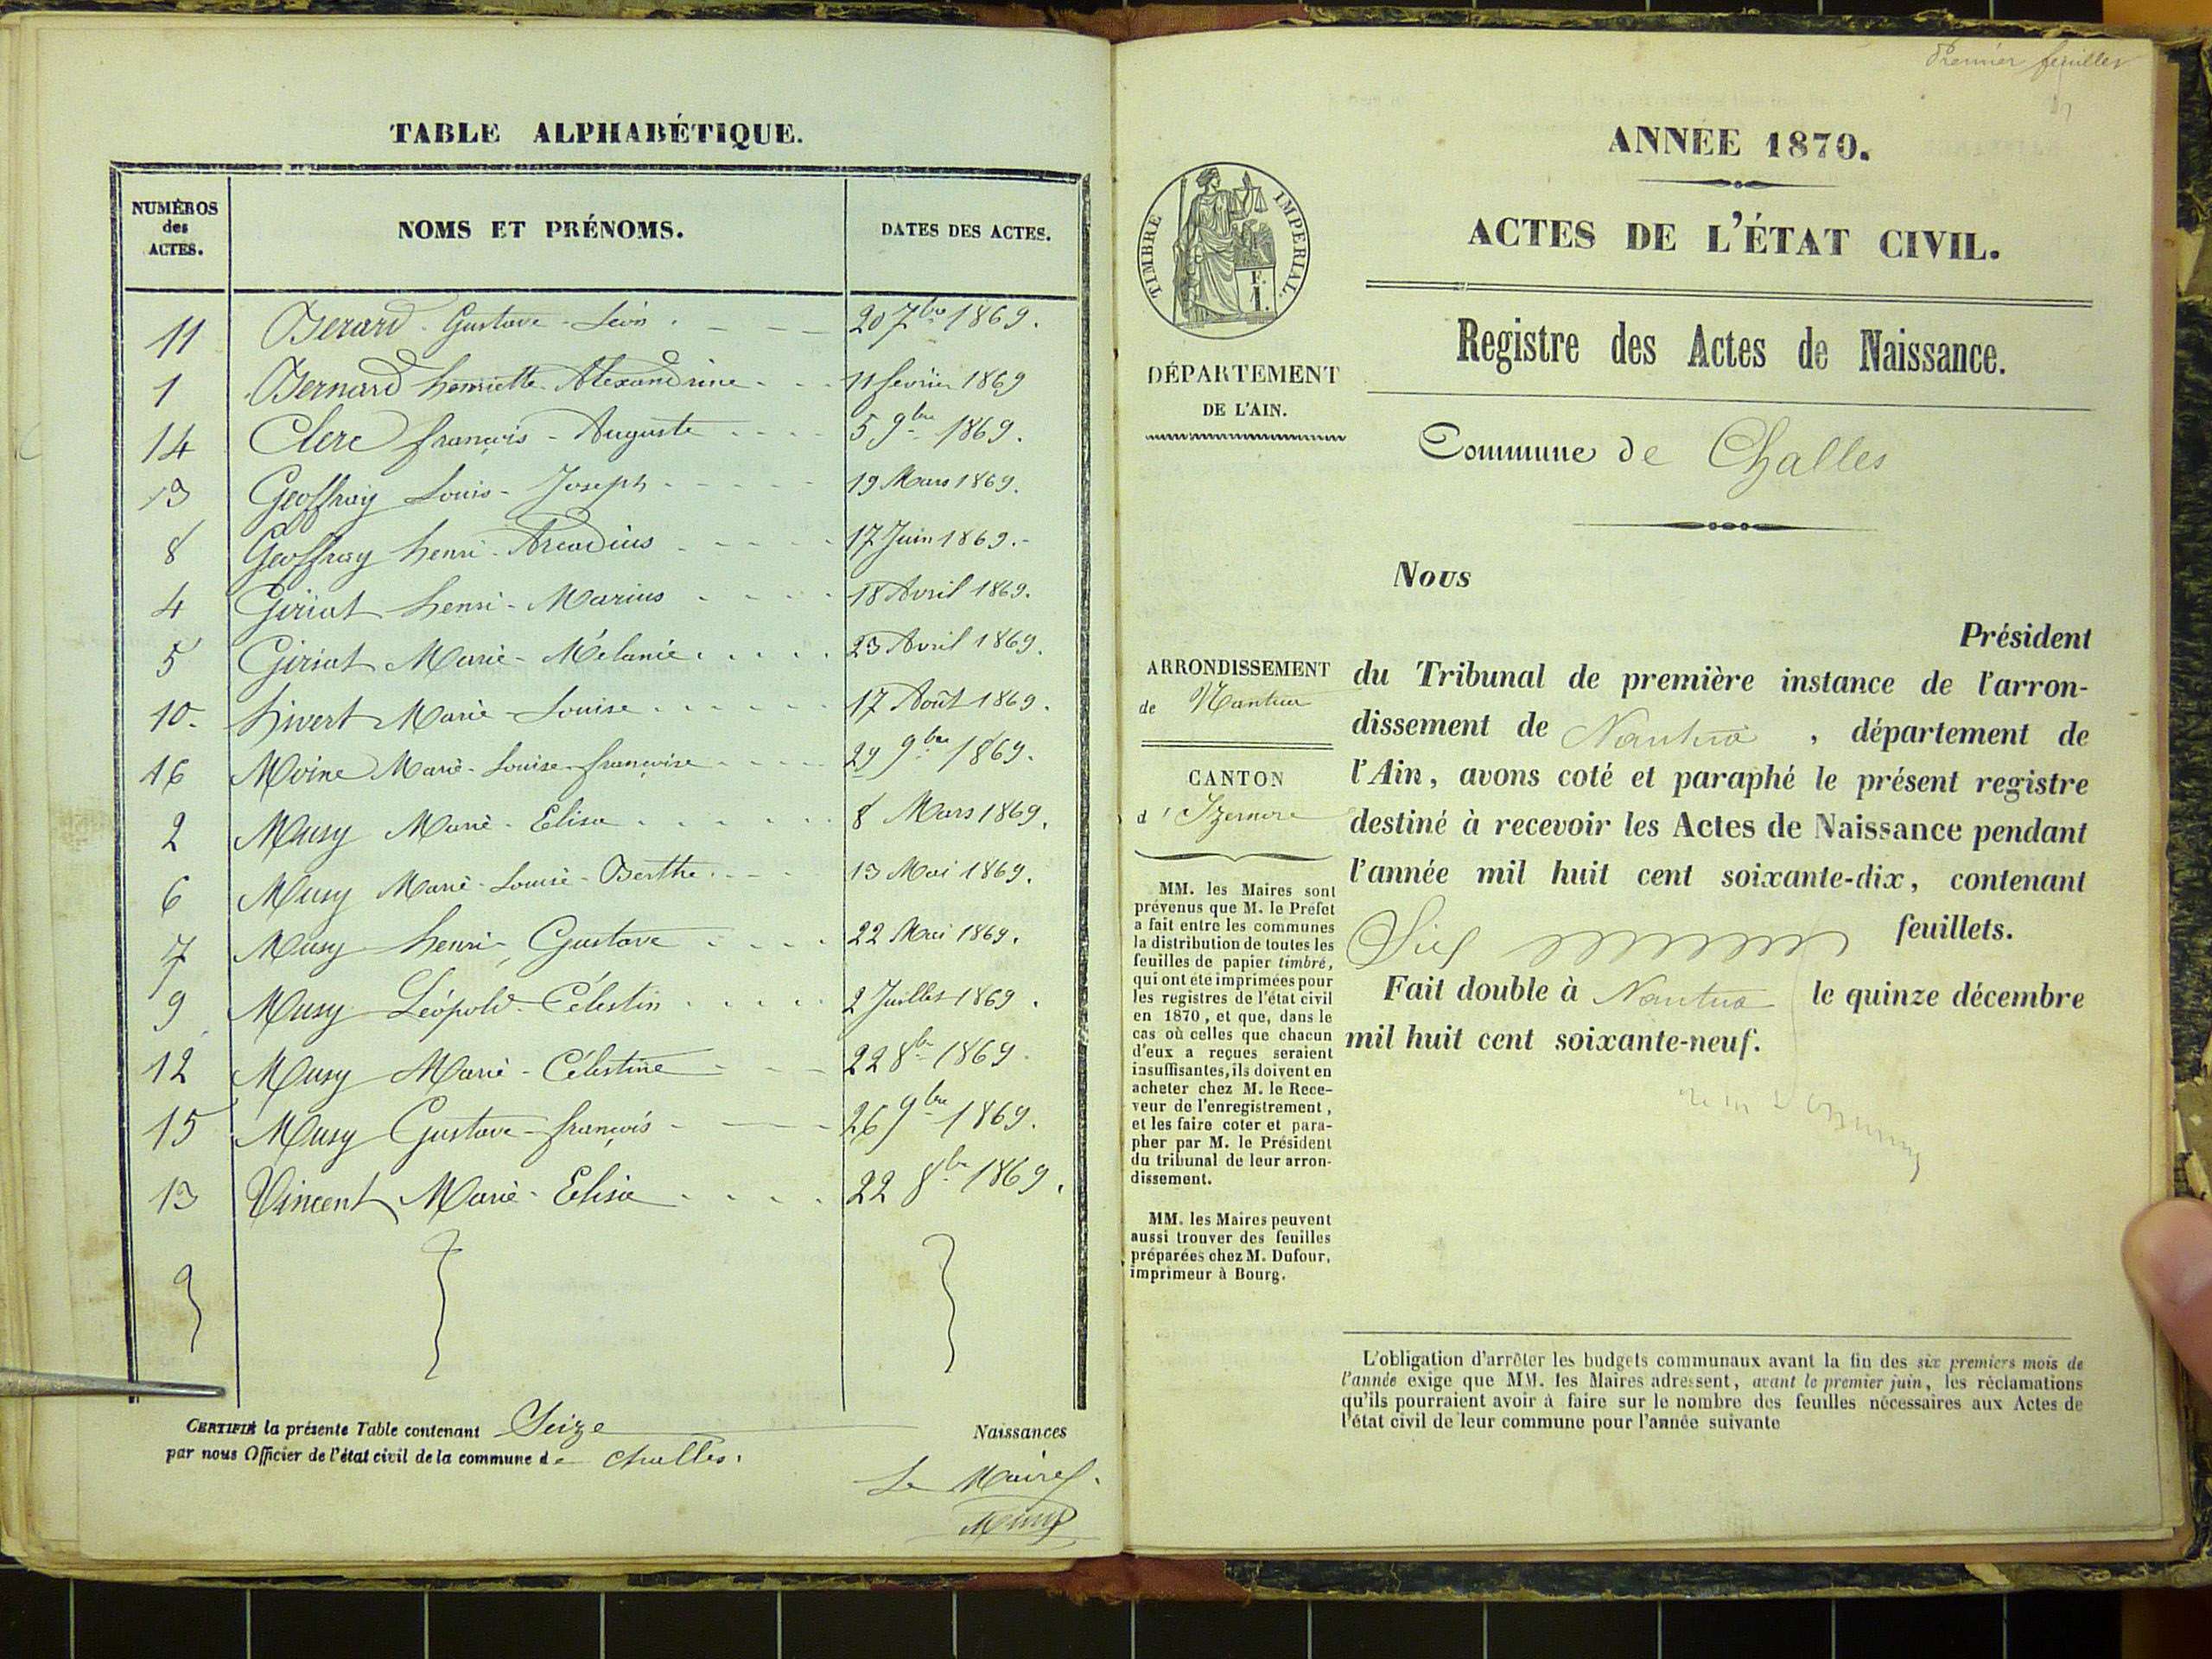 TABLE ALPHABÉTIQUE.
NUMÉROS des ACTES. NOMS ET PRÉNOMS. DATES DES ACTES.
11 Berard Gustave Léon 20 7bre 1869.
1 Bernard henriette Alexandrine 11 février 1869
14 Clerc françois - Auguste 5 9bre 1869.
3 Geoffray Louis - Joseph 19 Mars 1869.
8 Geoffray henri - Arcadius 17 Juin 1869.
4 Giriat henri - Marius 18 Avril 1869.
5 Giriat Marie - Mélanie 23 Avril 1869.
10. hivert Marie - Louise 17 Août 1869.
16 Moine Marie - Louise françoise 29 9bre 1869.
2 Musy Marie - Elisa 8 Mars 1869.
6 Musy Marie - Louise - Berthe 13 Mai 1869.
7 Musy henri - Gustave 22 Mai 1869.
9 Musy Léopold - Célestin 2 Juillet 1869.
12 Musy Marie - Célestine 22 8bre 1869.
15 Musy Gustave - françois 26 9bre 1869.
13 Vincent Marie - Elisa 22 8bre 1869.
CERTIFIÉ la présente Table contenant Seize Naissances
par nous Officier de l'état civil de la commune de Challes.
Le Maire.
Musy
Premier feuillet
ANNÉE 1870.
ACTES DE L'ÉTAT CIVIL.
Registre des Actes de Naissance.
TIMBRE IMPERIAL.
F.
1.
DÉPARTEMENT
DE L'AIN.
Commune de Challes
ARRONDISSEMENT
de Nantua
CANTON
d'Izernore
MM. les Maires sont
prévenus que M. le Préfet
a fait entre les communes
la distribution de toutes les
feuilles de papier timbré,
qui ont été imprimées pour
les registres de l'état civil
en 1870, et que, dans le
cas où celles que chacun
d'eux a reçues seraient
insuffisantes, ils doivent en
acheter chez M. le Rece-
veur de l'enregistrement,
et les faire coter et para-
pher par M. le Président
du tribunal de leur arron-
dissement.
MM. les Maires peuvent
aussi trouver des feuilles
préparées chez M. Dufour,
imprimeur à Bourg.
Nous
Président
du Tribunal de première instance de l'arron-
dissement de Nantua, département de
l'Ain, avons coté et paraphé le présent registre
destiné à recevoir les Actes de Naissance pendant
l'année mil huit cent soixante-dix, contenant
Six feuillets.
Fait double à Nantua le quinze décembre
mil huit cent soixante-neuf.
L'obligation d'arrêter les budgets communaux avant la fin des six premiers mois de
l'année exige que MM. les Maires adressent, avant le premier juin, les réclamations
qu'ils pourraient avoir à faire sur le nombre des feuilles nécessaires aux Actes de
l'état civil de leur commune pour l'année suivante